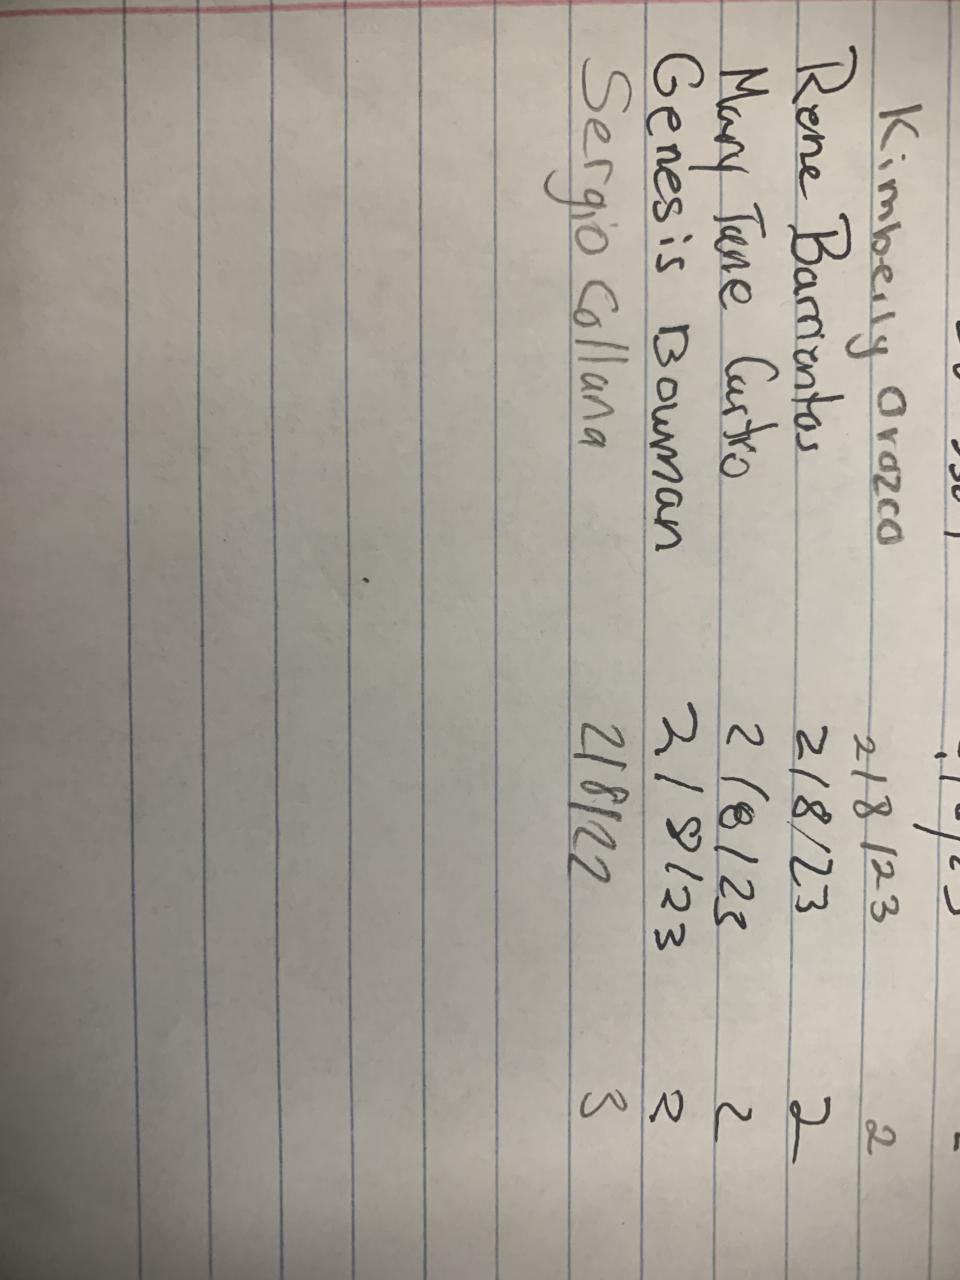 Kimberly Orozco 2/8/23 2
Rene Barrientos 2/8/23 2
Mary Jane Castro 2/8/23 2
Genesis Bowman 2/8/23 2
Sergio Collana 2/8/22 3